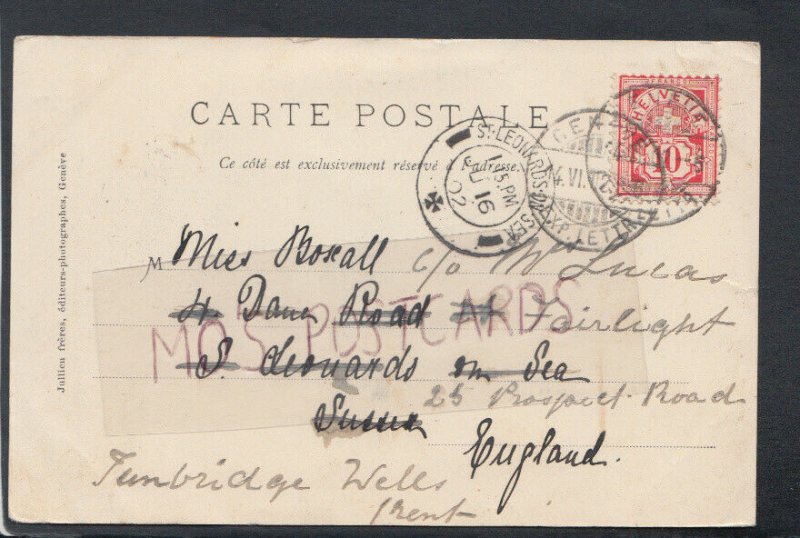 CARTE POSTALE
Ce côté est exclusivement réservé à l'adresse.
HELVETIA
FRANCO
10
ST. LEONARDS-ON-SEA
7.15.PM
JU 16
02
GENÈVE
EXP. LETTR.
Jullien frères, éditeurs-photographes, Genève
M Miss Boxall c/o Mrs Lucas
4 Dane Road Fairlight
MO'S POSTCARDS
S. Leonards on Sea
25 Prospect Road
Sussex
England.
Tunbridge Wells
Kent